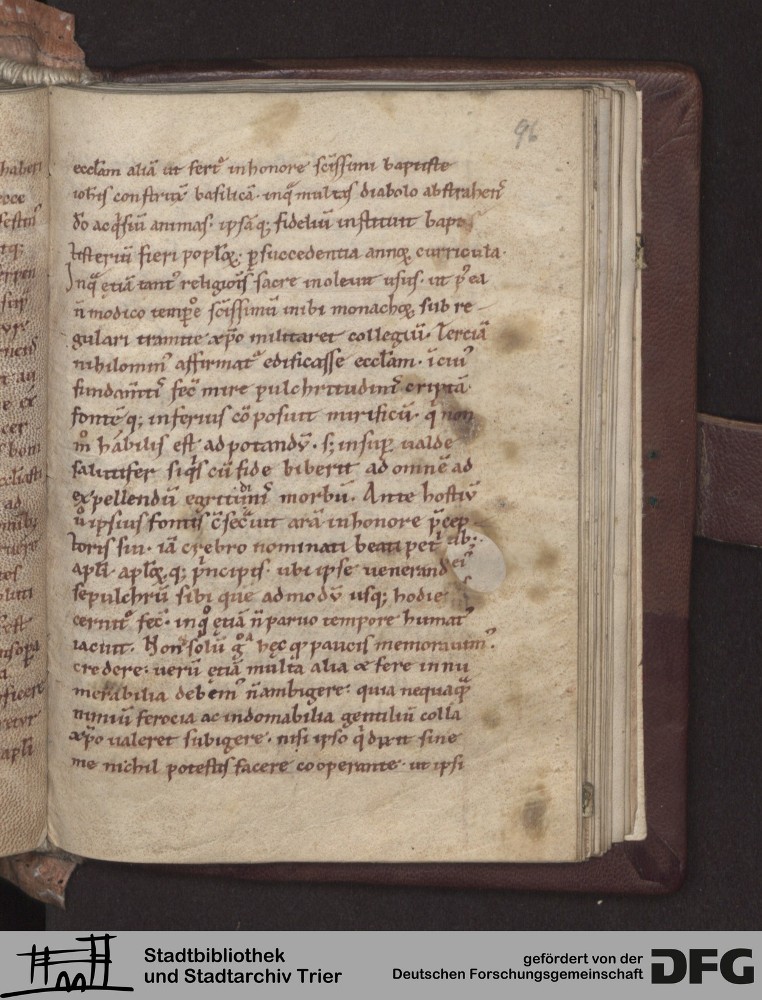 96
eccl̄am aliā ut fert᷒ in honore sc̄issimi baptiste
ioh̄is construx̄ basilicā· in q̄ multas diabolo abstrahen᷒
do acq̄siuit animas· ipsāq; fideliū instituit bapt
isteriū fieri popl̄oꝝ· p̱ succedentia annoꝝ curricula·
In q̄ ętiā tant᷒ religiōis sacre inoleuit usus· ut p̄ ea
n̄ modico temp̱e sc̄issimū inibi monachoꝝ sub re
gulari tramite xp̄o militaret collegiū· Terciā
nihilomin᷒ affirmat᷒ edificasse eccl̄am· ī cui᷒
fundam̄tis fec̄ mire pulchritudinis criptā·
fontēq; inferius cōposuit mirificū· q̄ non
m̊ habilis est ad potandū· s; insup̱ ualde
salutifer siq̄s cū fide biberit ad omnē ad
expellendū egritudinis morbū· Ante hostiū
ů ipsius fontis c̄sec̄uit arā in honore p̄cep
toris sui· iā crebro nominati beati petri
apl̄i· apl̄oꝝq; p̄ncipis· ubi ipse uenerand
sepulchrū sibi que admodū usq; hodie
cernit᷒ fec̄· in q̊ ętiā n̄ paruo tempore humat᷒
iacuit· Non solū g̊ hęc quę paucis memorauim᷒·
credere· uerū ętiā multa alia & fere innu
merabilia debem᷒ n̄ ambigere· quia nequaq̄
nimiū ferocia ac indomabilia gentiliū colla
xp̄o ualeret subigere· nisi ipso q̄ dixit sine
me nichil potestis facere cooperante· ut ipsi
Stadtbibliothek
und Stadtarchiv Trier
gefördert von der
Deutschen Forschungsgemeinschaft
DFG